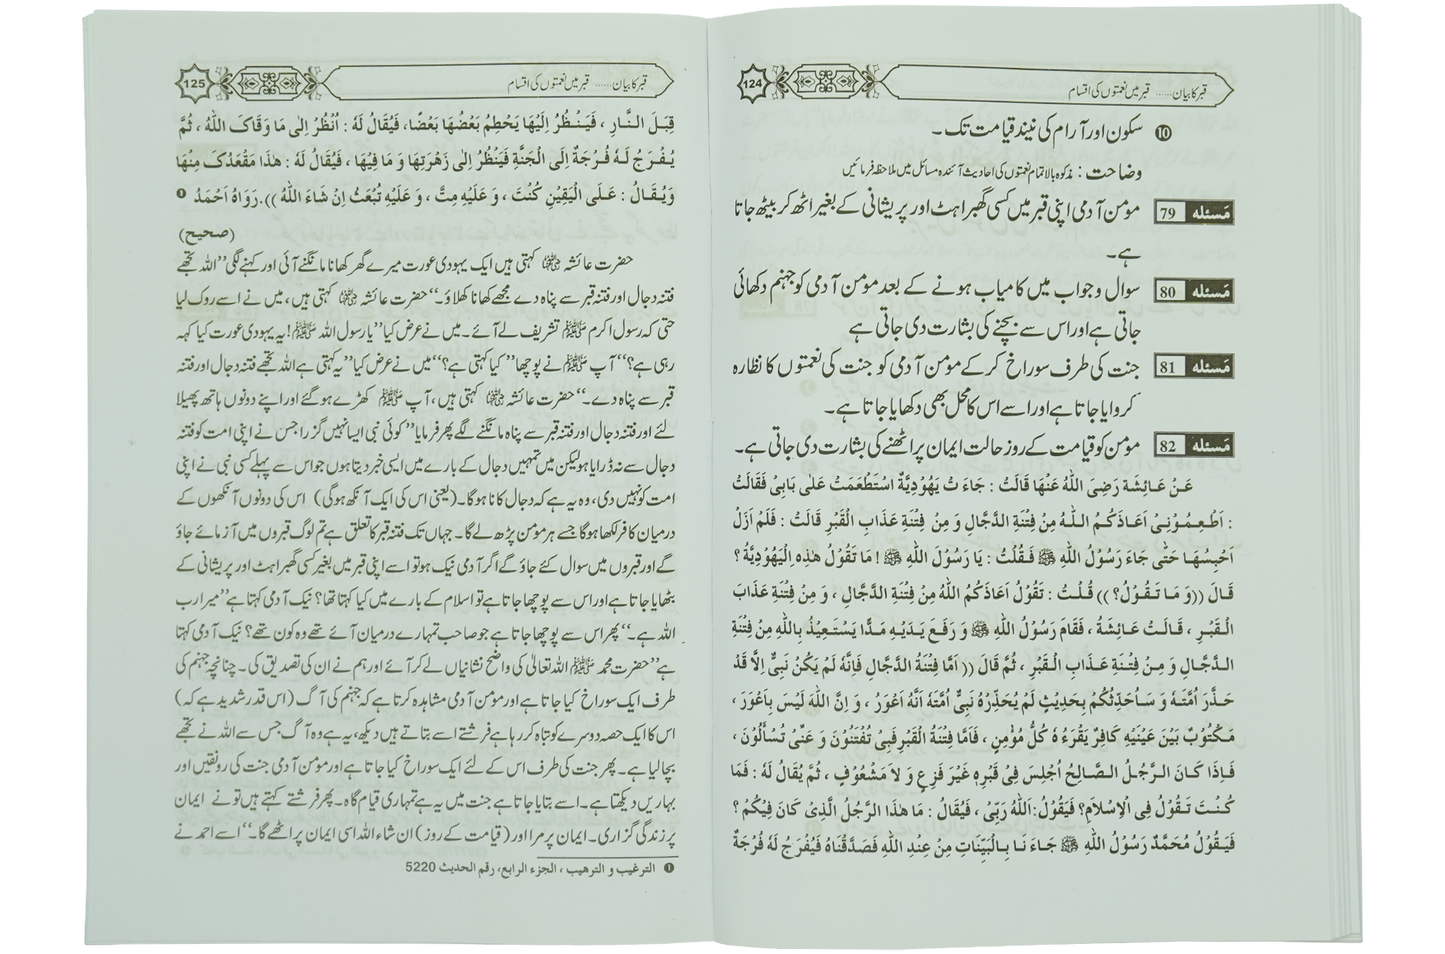 124 قبر کا بیان ...... قبر میں نعمتوں کی اقسام
⑩ سکون اور آرام کی نیند قیامت تک۔
وضاحت : مذکورہ بالا تمام نعمتوں کی احادیث آئندہ مسائل میں ملاحظہ فرمائیں
مسئلہ 79 مؤمن آدمی اپنی قبر میں کسی گھبراہٹ اور پریشانی کے بغیر اٹھ کر بیٹھ جاتا
ہے۔
مسئلہ 80 سوال و جواب میں کامیاب ہونے کے بعد مؤمن آدمی کو جہنم دکھائی
جاتی ہے اور اس سے بچنے کی بشارت دی جاتی ہے
مسئلہ 81 جنت کی طرف سوراخ کر کے مؤمن آدمی کو جنت کی نعمتوں کا نظارہ
کروایا جاتا ہے اور اسے اس کا محل بھی دکھایا جاتا ہے۔
مسئلہ 82 مؤمن کو قیامت کے روز حالت ایمان پر اٹھنے کی بشارت دی جاتی ہے۔
عَنْ عَائِشَةَ رَضِیَ اللّٰهُ عَنْهَا قَالَتْ : جَاءَتْ یَهُوْدِیَّةٌ اسْتَطْعَمَتْ عَلٰی بَابِیْ فَقَالَتْ
: اَطْعِمُوْنِیْ اَعَاذَکُمُ اللّٰهُ مِنْ فِتْنَةِ الدَّجَّالِ وَ مِنْ فِتْنَةِ عَذَابِ الْقَبْرِ قَالَتْ : فَلَمْ اَزَلْ
اَحْبِسُهَا حَتّٰی جَاءَ رَسُوْلُ اللّٰهِ ﷺ فَقُلْتُ : یَا رَسُوْلَ اللّٰهِ ﷺ ! مَا تَقُوْلُ هٰذِهِ الْیَهُوْدِیَّةُ ؟
قَالَ ((وَ مَا تَقُوْلُ؟ )) قُلْتُ : تَقُوْلُ اَعَاذَکُمُ اللّٰهُ مِنْ فِتْنَةِ الدَّجَّالِ ، وَ مِنْ فِتْنَةِ عَذَابَ
الْقَبْرِ ، قَالَتْ عَائِشَةُ ، فَقَامَ رَسُوْلُ اللّٰهِ ﷺ وَ رَفَعَ یَدَیْهِ مَدًّا یَسْتَعِیْذُ بِاللّٰهِ مِنْ فِتْنَةِ
الدَّجَّالِ وَ مِنْ فِتْنَةِ عَذَابِ الْقَبْرِ ، ثُمَّ قَالَ (( اَمَّا فِتْنَةُ الدَّجَّالِ فَاِنَّهُ لَمْ یَکُنْ نَبِیٌّ اِلَّا قَدْ
حَذَّرَ اُمَّتَهُ وَ سَاُحَدِّثُکُمْ بِحَدِیْثٍ لَمْ یُحَذِّرْهُ نَبِیٌّ اُمَّتَهُ اَنَّهُ اَعْوَرُ ، وَ اِنَّ اللّٰهَ لَیْسَ بِاَعْوَرَ ،
مَکْتُوْبٌ بَیْنَ عَیْنَیْهِ کَافِرٌ یَقْرَءُهُ کُلُّ مُؤْمِنٍ ، فَاَمَّا فِتْنَةُ الْقَبْرِ فَبِیْ تُفْتَنُوْنَ وَ عَنِّیْ تُسْأَلُوْنَ ،
فَاِذَا کَانَ الرَّجُلُ الصَّالِحُ اُجْلِسَ فِیْ قَبْرِهٖ غَیْرَ فَزِعٍ وَ لَا مَشْعُوْفٍ ، ثُمَّ یُقَالُ لَهُ : فَمَا
کُنْتَ تَقُوْلُ فِی الْاِسْلَامِ؟ فَیَقُوْلُ:اَللّٰهُ رَبِّیْ ، فَیُقَالُ : مَا هٰذَا الرَّجُلُ الَّذِیْ کَانَ فِیْکُمْ ؟
فَیَقُوْلُ مُحَمَّدٌ رَسُوْلُ اللّٰهِ ﷺ جَاءَ نَا بِالْبَیِّنَاتِ مِنْ عِنْدِ اللّٰهِ فَصَدَّقْنَاهُ فَیُفْرَجُ لَهُ فُرْجَةٌ
125 قبر کا بیان ...... قبر میں نعمتوں کی اقسام
قِبَلَ النَّارِ ، فَیَنْظُرُ اِلَیْهَا یَحْطِمُ بَعْضُهَا بَعْضًا، فَیُقَالُ لَهُ : اُنْظُرْ اِلٰی مَا وَقَاکَ اللّٰهُ ، ثُمَّ
یُفْرَجُ لَهُ فُرْجَةٌ اِلَی الْجَنَّةِ فَیَنْظُرُ اِلٰی زَهْرَتِهَا وَ مَا فِیْهَا ، فَیُقَالُ لَهُ : هٰذَا مَقْعَدُکَ مِنْهَا
وَیُقَالُ : عَلَی الْیَقِیْنِ کُنْتَ ، وَ عَلَیْهِ مِتَّ ، وَ عَلَیْهِ تُبْعَثُ اِنْ شَاءَ اللّٰهُ )).رَوَاهُ اَحْمَدُ ❶
(صحیح)
حضرت عائشہ رضی اللہ عنہا کہتی ہیں ایک یہودی عورت میرے گھر کھانا مانگنے آئی اور کہنے لگی ”اللہ تجھے
فتنہ دجال اور فتنہ قبر سے پناہ دے مجھے کھانا کھلاؤ۔“ حضرت عائشہ رضی اللہ عنہا کہتی ہیں، میں نے اسے روک لیا
حتی کہ رسول اکرم ﷺ تشریف لے آئے۔ میں نے عرض کیا ”یا رسول اللہ ﷺ! یہ یہودی عورت کیا کہہ
رہی ہے؟“ آپ ﷺ نے پوچھا ”کیا کہتی ہے؟“ میں نے عرض کیا ”یہ کہتی ہے اللہ تجھے فتنہ دجال اور فتنہ
قبر سے پناہ دے۔“ حضرت عائشہ رضی اللہ عنہا کہتی ہیں، آپ ﷺ کھڑے ہو گئے اور اپنے دونوں ہاتھ پھیلا
لئے اور فتنہ دجال اور فتنہ قبر سے پناہ مانگنے لگے پھر فرمایا ”کوئی نبی ایسا نہیں گزرا جس نے اپنی امت کو فتنہ
دجال سے نہ ڈرایا ہو لیکن میں تمہیں دجال کے بارے میں ایسی خبر دیتا ہوں جو اس سے پہلے کسی نبی نے اپنی
امت کو نہیں دی، وہ یہ ہے کہ دجال کانا ہوگا۔ (یعنی اس کی ایک آنکھ ہوگی) اس کی دونوں آنکھوں کے
درمیان کافر لکھا ہوگا جسے ہر مومن پڑھ لے گا۔ جہاں تک فتنہ قبر کا تعلق ہے تم لوگ قبروں میں آزمائے جاؤ
گے اور قبروں میں سوال کئے جاؤ گے اگر آدمی نیک ہو تو اسے اپنی قبر میں بغیر کسی گھبراہٹ اور پریشانی کے
بٹھایا جاتا ہے اور اس سے پوچھا جاتا ہے تو اسلام کے بارے میں کیا کہتا تھا؟ نیک آدمی کہتا ہے ”میرا رب
اللہ ہے۔“ پھر اس سے پوچھا جاتا ہے جو صاحب تمہارے درمیان آئے تھے وہ کون تھے؟ نیک آدمی کہتا
ہے ”حضرت محمد ﷺ اللہ تعالیٰ کی واضح نشانیاں لے کر آئے اور ہم نے ان کی تصدیق کی۔ چنانچہ جہنم کی
طرف ایک سوراخ کیا جاتا ہے اور مومن آدمی مشاہدہ کرتا ہے کہ جہنم کی آگ (اس قدر شدید ہے کہ)
اس کا ایک حصہ دوسرے کو تباہ کر رہا ہے فرشتے اسے بتاتے ہیں دیکھ، یہ ہے وہ آگ جس سے اللہ نے تجھے
بچا لیا ہے۔ پھر جنت کی طرف اس کے لئے ایک سوراخ کیا جاتا ہے اور مومن آدمی جنت کی رونقیں اور
بہاریں دیکھتا ہے۔ اسے بتایا جاتا ہے جنت میں یہ ہے تمہاری قیام گاہ۔ پھر فرشتے کہتے ہیں تو نے ایمان
پر زندگی گزاری۔ ایمان پر مرا اور (قیامت کے روز) ان شاء اللہ اسی ایمان پر اٹھے گا۔“ اسے احمد نے
❶ الترغیب و الترھیب ، الجزء الرابع، رقم الحدیث 5220